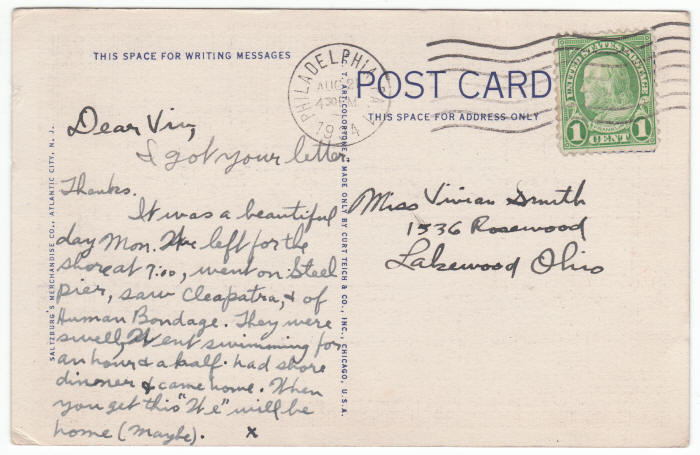 THIS SPACE FOR WRITING MESSAGES
Dear Viv,
I got your letter
Thanks.
It was a beautiful
day Mon. We left for the
shore at 7:00, went on Steel
pier, saw Cleapatra, & of
Human Bondage. They were
swell, Went swimming for
an hour & a half. had shore
dinner & came home. When
you get this "We" will be
home (Maybe). x
SALTZBURG'S MERCHANDISE CO., ATLANTIC CITY, N. J.
MADE ONLY BY CURT TEICH & CO., INC., CHICAGO, U.S.A.
PHILADELPHIA, PA.
AUG 2
430PM
19
POST CARD
THIS SPACE FOR ADDRESS ONLY
UNITED STATES POSTAGE
FRANKLIN
1 CENT 1
Miss Vivian Smith
1336 Rosewood
Lakewood Ohio